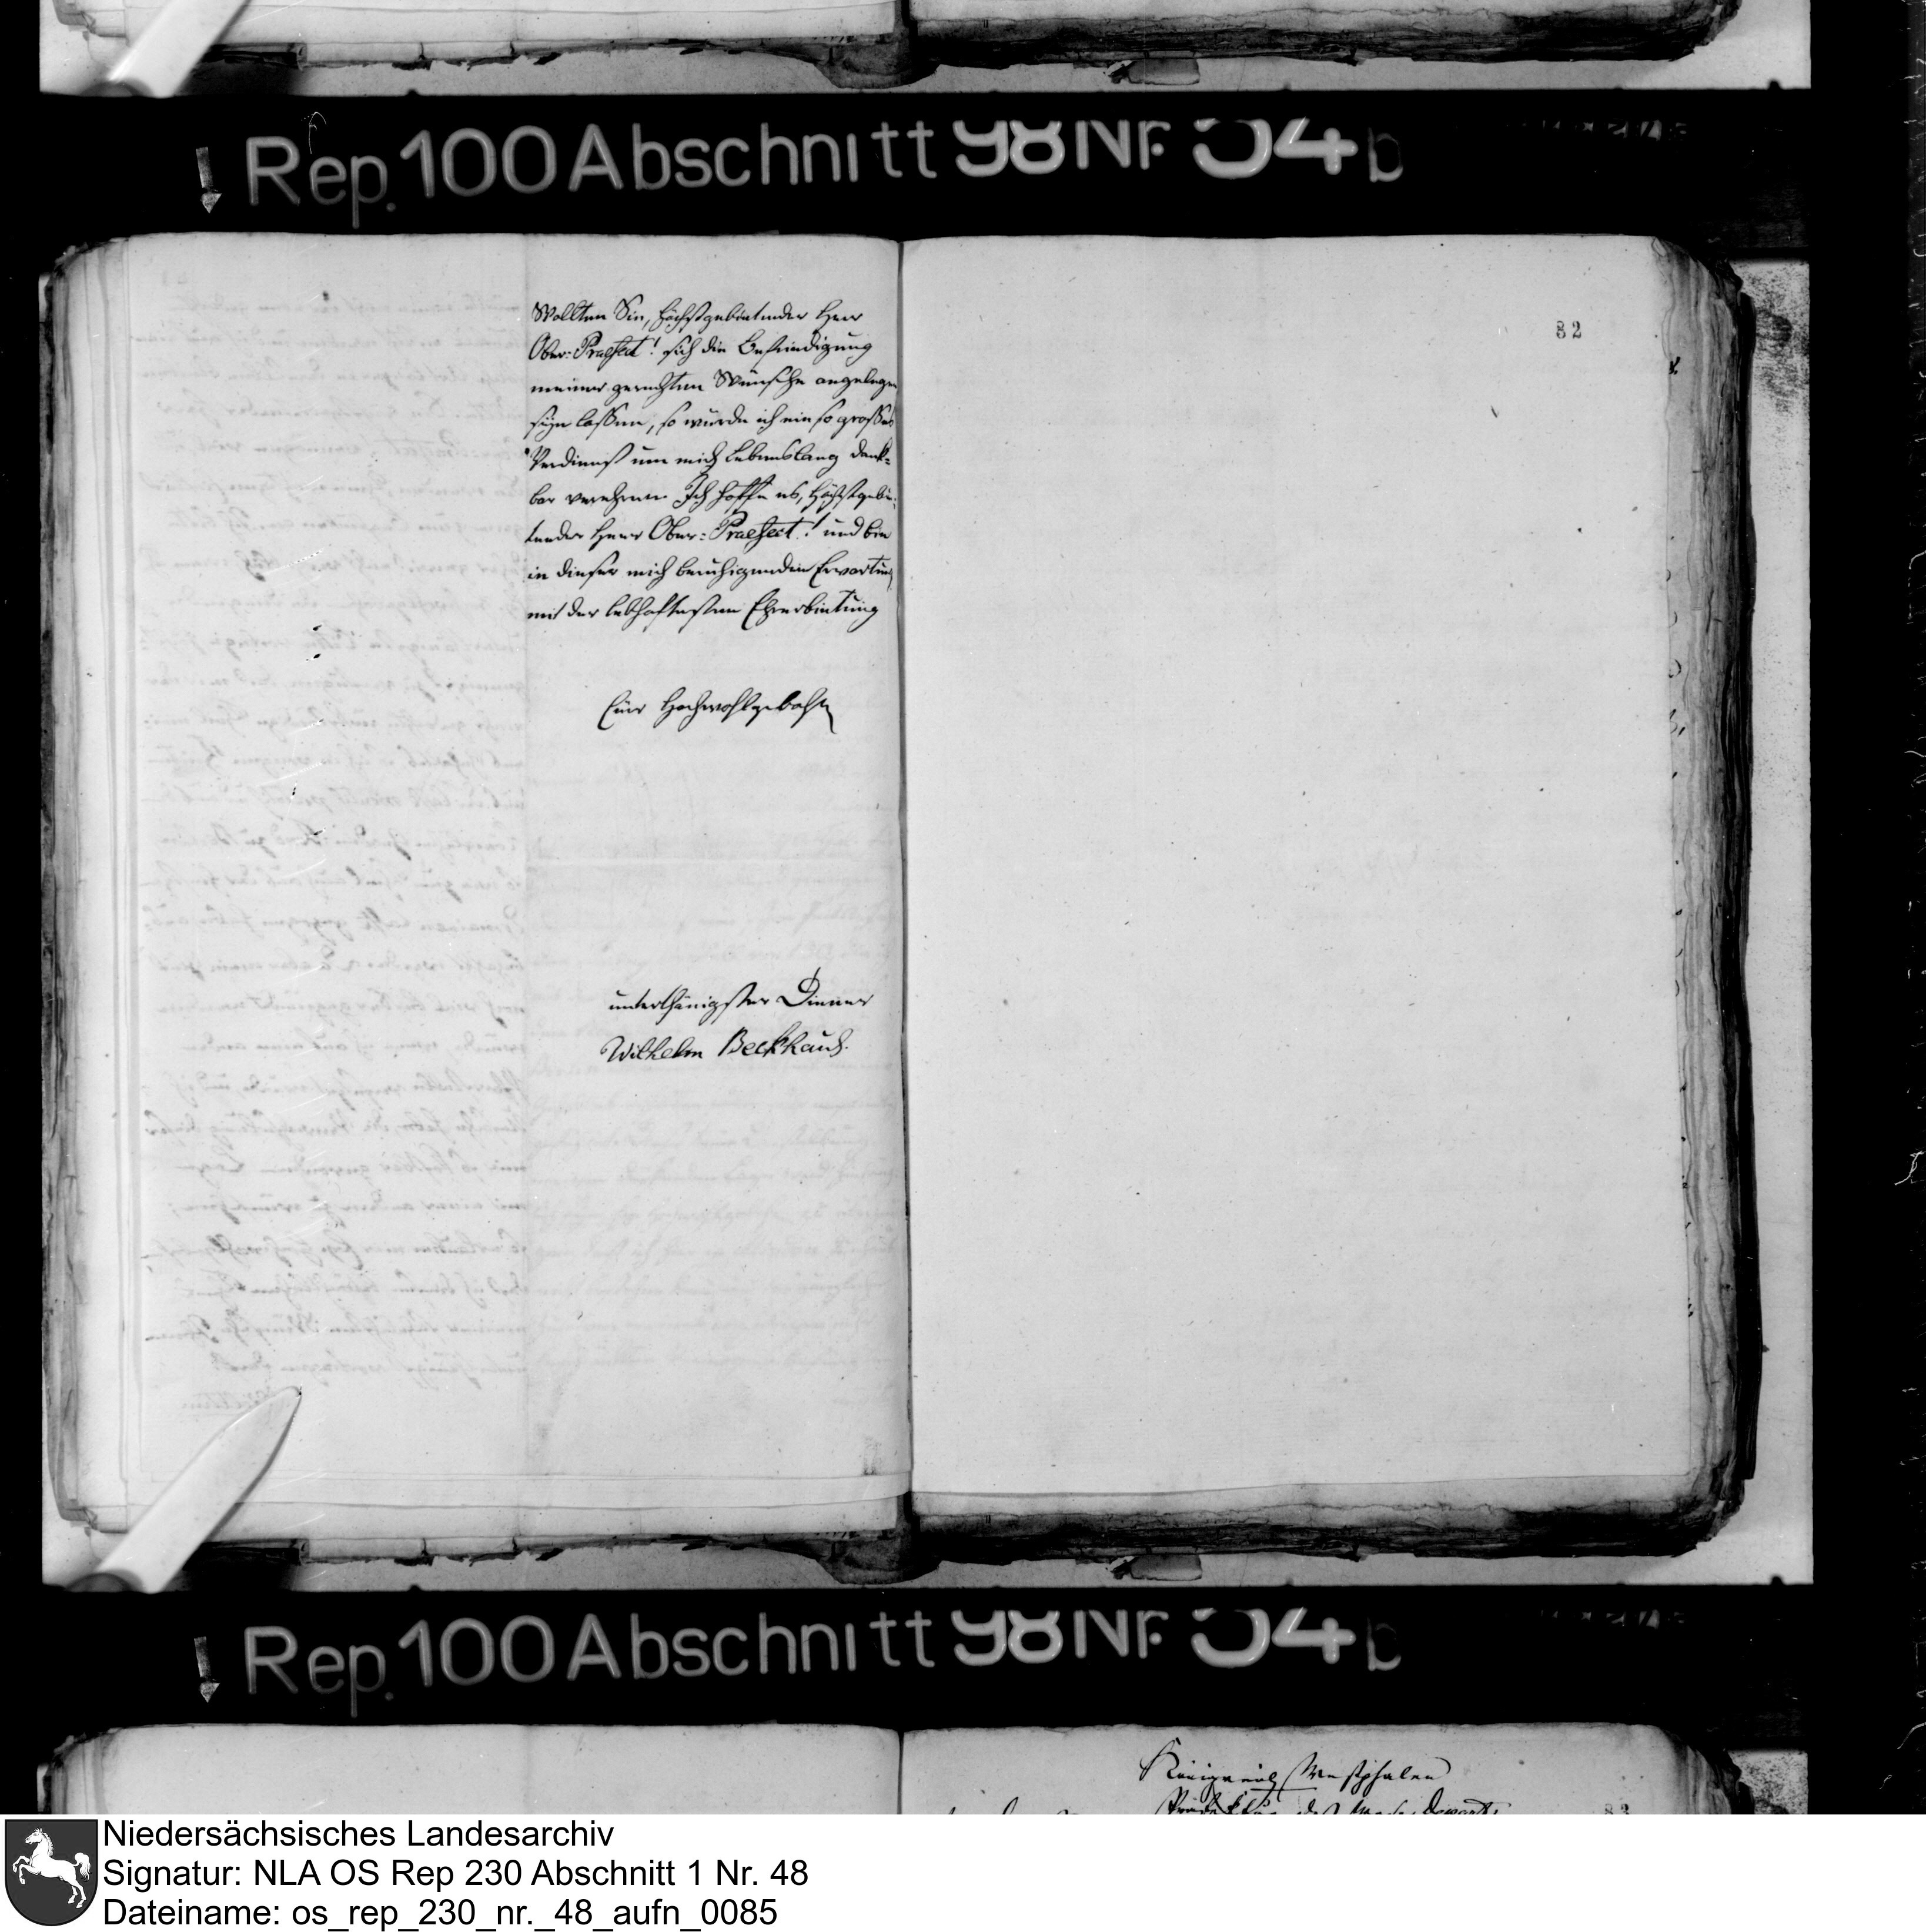 Rep. 100 Abschnitt 98 Nr. 54 b
Wollten Sie, höchstgebietender Herr
Ober-Praefect! sich die Befriedigung
meiner gerechten Wünsche angelegen
seyn lassen, so würde ich ein so grosses
Verdienst um mich Lebenslang dank-
bar verehren. Ich hoffe es, Höchstgebie-
tender Herr Ober-Praefect! und bin
in dieser mich beruhigenden Erwartung
mit der lebhaftesten Ehrerbietung
Euer Hochwohlgebohr
unterthänigster Diener
Wilhelm Beckhaus.
82
Rep. 100 Abschnitt 98 Nr. 54 b
Königreich Westphalen
83
Niedersächsisches Landesarchiv
Signatur: NLA OS Rep 230 Abschnitt 1 Nr. 48
Dateiname: os_rep_230_nr._48_aufn_0085